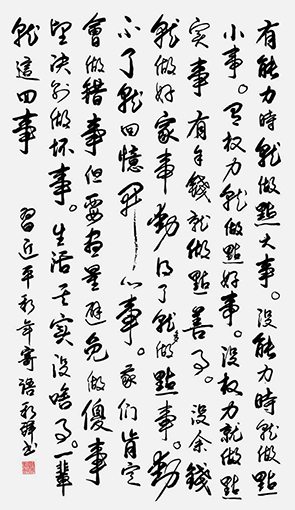 有能力時就做點大事。沒能力時就做點
小事。有权力就做點好事。沒权力就做點
实事 有余錢就做點善事。沒余錢
就做好家事 動得了就多做點事。動
不了就回憶开心事。我们肯定
會做錯事 但要尽量避免做傻事
坚决别做坏事。生活其实沒啥事。一輩
就這四事
習近平新年寄語 书